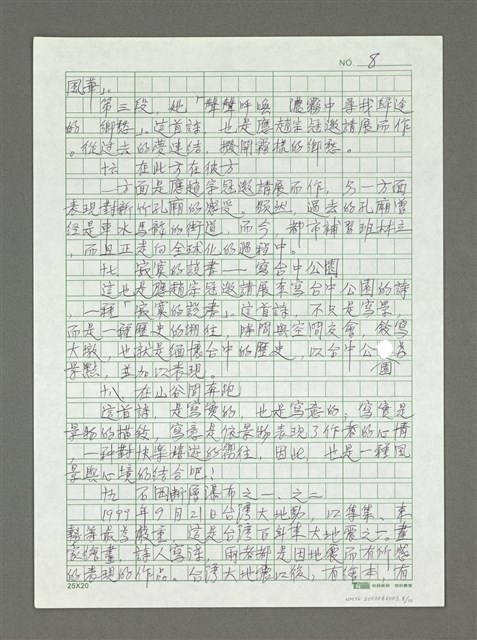 NO. 8
風華」。
第三段,她「聲聲呼喚 濃霧中尋找歸途
的 鄉愁」。這首詩,也是應趙宗冠邀請展而作
。從過去的 連結,撥開霧樣的鄉愁。
十六 在此方在彼方
一方面是應趙宗冠邀請展而作,另一方面
表現對新竹孔廟的感受。顯然,過去的孔廟曾
經是車水馬龍的街道,而今,都市補習班林立
,而且正走向全球化的過程中。
十七 寂寞的說書——寫台中公園
這也是應趙宗冠邀請展來寫台中公園的詩
,一種「寂寞的說書」。這首詩,不只是寫景,
而是一種歷史的嚮往,時間與空間交會,
大墩,也就是緬懷台中的歷史,以台中公園
景點,並加以表現。
十八 在山谷間奔跑
這首詩,是寫實的,也是寫意的;寫實是
景物的描敘,寫意是依景物表現了作者的心情
,一種對快樂嬉遊的嚮往,因此,也是一種風
景與心境的結合吧!
十九 石岡斷層瀑布之一、之二
1999年9月21日台灣大地震,以集集、東
勢等最為嚴重,這是台灣百年來大地震之一。畫
家繪畫,詩人寫詩,兩者都是因地震而有所感
的表現的作品。台灣大地震以後,有繪本,有
25X20